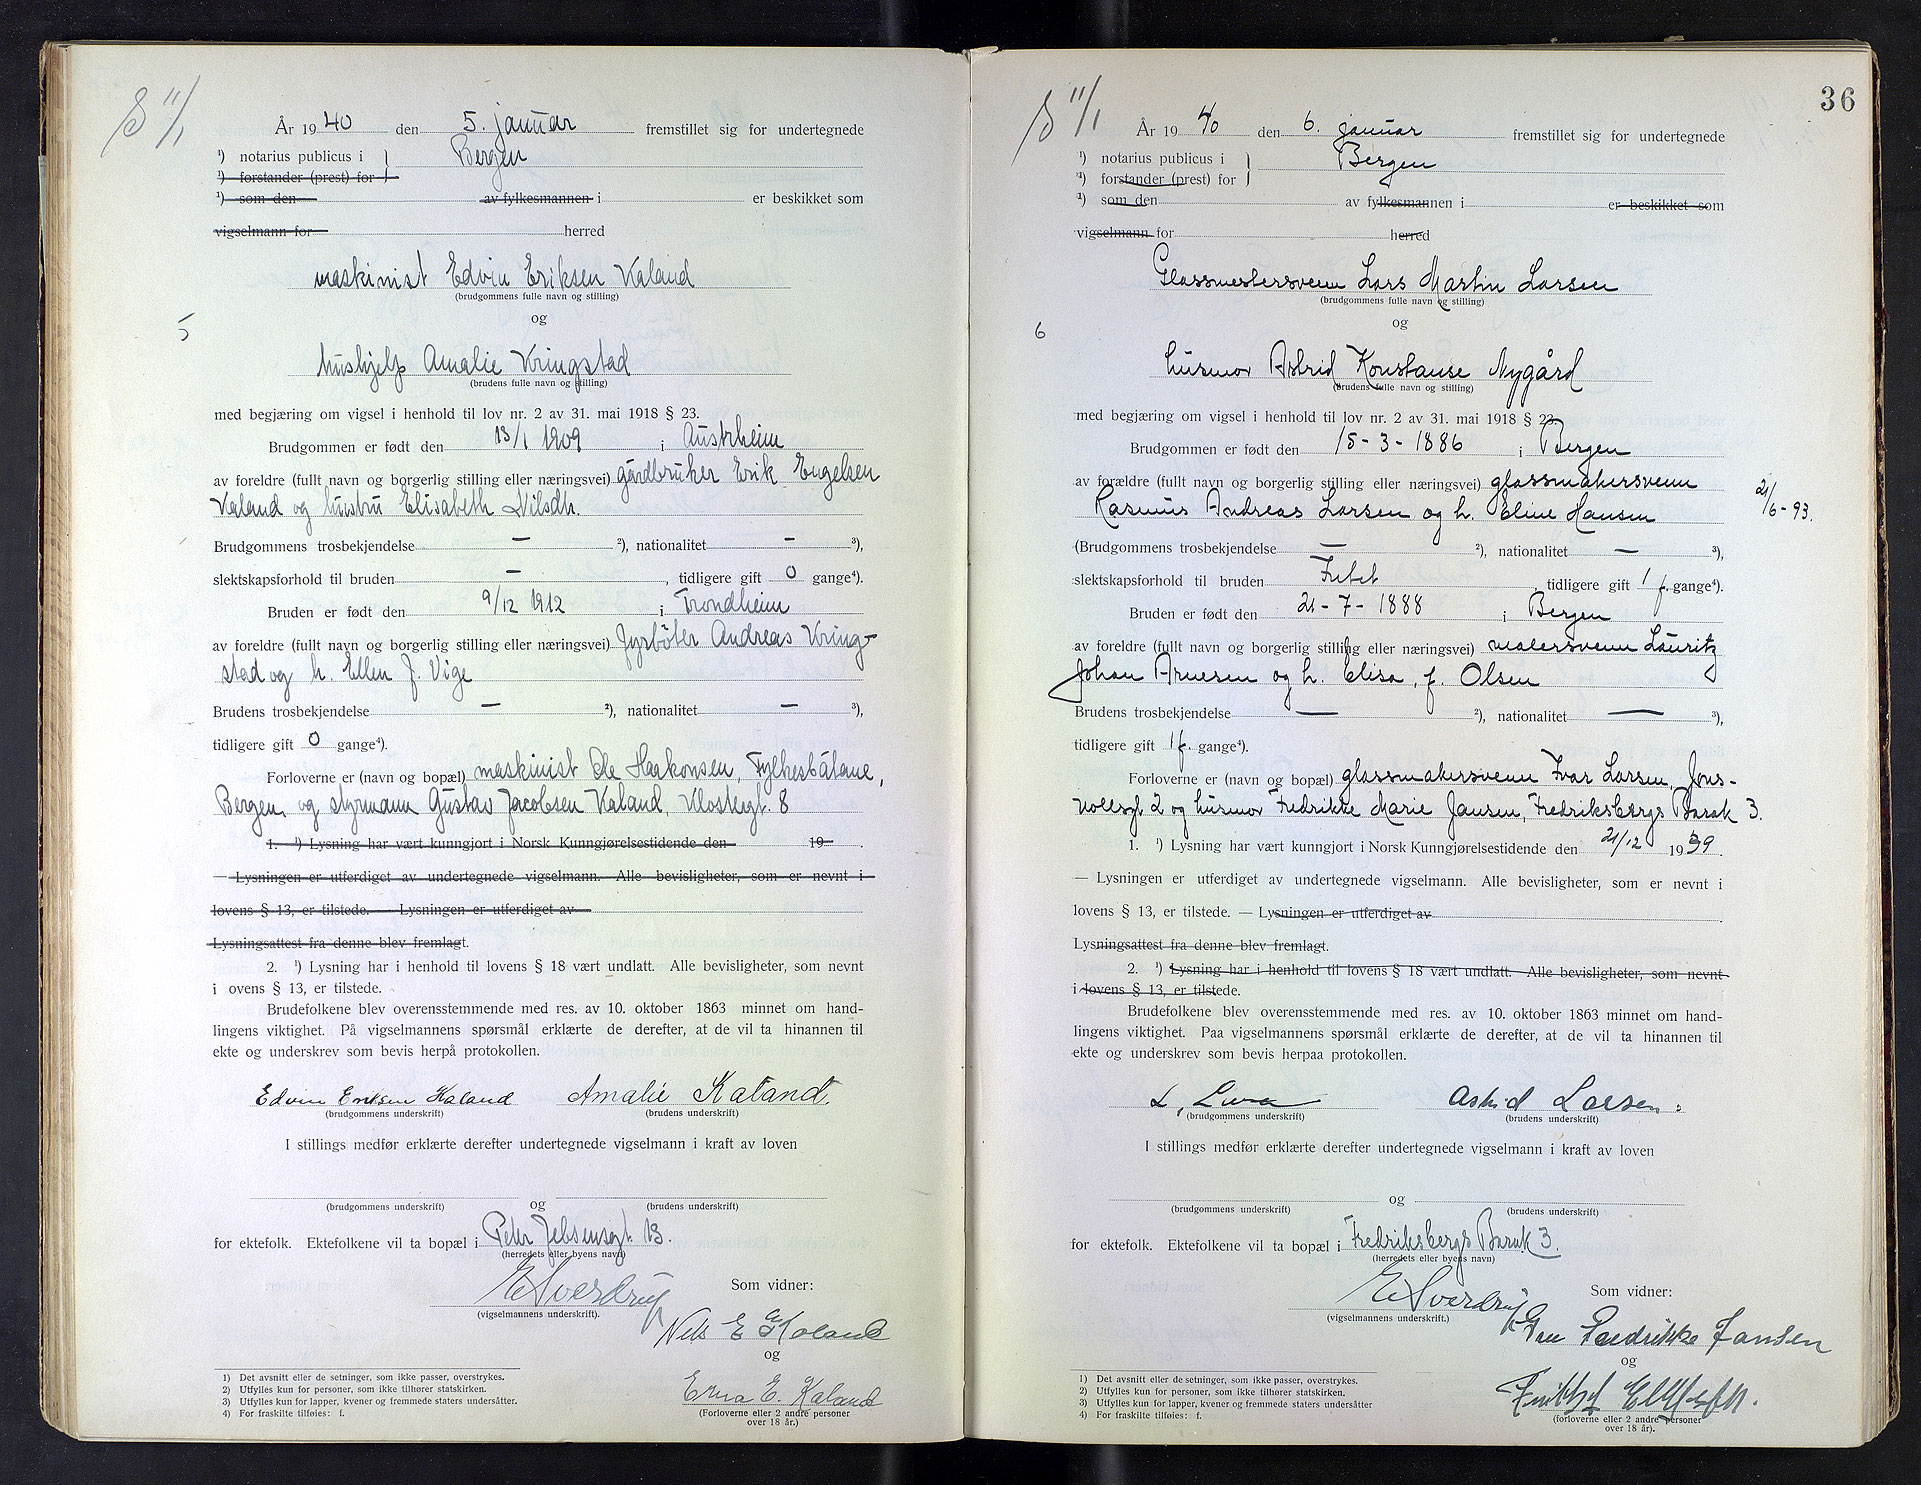 S 11/1
År 1940 den 5. januar fremstillet sig for undertegnede
¹) notarius publicus i } Bergen
¹) forstander (prest) for
¹) som den av fylkesmannen i er beskikket som
vigselmann for herred
maskinist Edvin Eriksen Kaland
(brudgommens fulle navn og stilling)
og
5
hushjelp Amalie Kringstad
(brudens fulle navn og stilling)
med begjæring om vigsel i henhold til lov nr. 2 av 31. mai 1918 § 23.
Brudgommen er født den 13/1 1909 i Austrheim
av foreldre (fullt navn og borgerlig stilling eller næringsvei) gårdbruker Erik Engelsen
Kaland og hustru Elisabeth Nilsdh.
Brudgommens trosbekjendelse — ²), nationalitet — ³),
slektskapsforhold til bruden — , tidligere gift 0 gange⁴).
Bruden er født den 9/12 1912 i Trondheim
av foreldre (fullt navn og borgerlig stilling eller næringsvei) fyrbøter Andreas Kring-
stad og h. Ellen f. Vige
Brudens trosbekjendelse — ²), nationalitet — ³),
tidligere gift 0 gange⁴).
Forloverne er (navn og bopæl) maskinist Ole Haakonsen, Fylkesbåtane,
Bergen, og styrmann Gustav Jacobsen Kaland, Klostergt. 8
1. ¹) Lysning har vært kunngjort i Norsk Kunngjørelsestidende den 19 .
— Lysningen er utferdiget av undertegnede vigselmann. Alle bevisligheter, som er nevnt i
lovens § 13, er tilstede. — Lysningen er utferdiget av
Lysningsattest fra denne blev fremlagt.
2. ¹) Lysning har i henhold til lovens § 18 vært undlatt. Alle bevisligheter, som nevnt
i ovens § 13, er tilstede.
Brudefolkene blev overensstemmende med res. av 10. oktober 1863 minnet om hand-
lingens viktighet. På vigselmannens spørsmål erklærte de derefter, at de vil ta hinannen til
ekte og underskrev som bevis herpå protokollen.
Edvin Eriksen Kaland Amalie Kaland,
(brudgommens underskrift) (brudens underskrift)
I stillings medfør erklærte derefter undertegnede vigselmann i kraft av loven
og
(brudgommens underskrift) (brudens underskrift)
for ektefolk. Ektefolkene vil ta bopæl i Peter Jebsensgt. 13.
(herredets eller byens navn)
E Sverdrup Som vidner:
(vigselmannens underskrift).
Nils E Kaland
og
Erna E. Kaland
(Forloverne eller 2 andre personer
over 18 år.)
1) Det avsnitt eller de setninger, som ikke passer, overstrykes.
2) Utfylles kun for personer, som ikke tilhører statskirken.
3) Utfylles kun for lapper, kvener og fremmede staters undersåtter.
4) For fraskilte tilføies: f.
36
S 11/1
År 1940 den 6. januar fremstillet sig for undertegnede
¹) notarius publicus i } Bergen
¹) forstander (prest) for
¹) som den av fylkesmannen i er beskikket som
vigselmann for herred
Glassmestersvenn Lars Martin Larsen
(brudgommens fulle navn og stilling)
og
6
husmor Astrid Konstanse Nygård
(brudens fulle navn og stilling)
med begjæring om vigsel i henhold til lov nr. 2 av 31. mai 1918 § 23.
Brudgommen er født den 15-3-1886 i Bergen
av forældre (fullt navn og borgerlig stilling eller næringsvei) glassmakersvenn
Rasmus Andreas Larsen og h. Eline Hansen
21/6-93.
(Brudgommens trosbekjendelse — ²), nationalitet — ³),
slektskapsforhold til bruden Intet , tidligere gift 1 f. gange⁴).
Bruden er født den 21-7-1888 i Bergen
av foreldre (fullt navn og borgerlig stilling eller næringsvei) malersvenn Lauritz
Johan Arnesen og h. Elisa, f. Olsen
Brudens trosbekjendelse — ²), nationalitet — ³),
tidligere gift 1 f. gange⁴).
Forloverne er (navn og bopæl) glassmakersvenn Ivar Larsen, Jons-
vollsgt 2 og husmor Fredrikke Marie Jansen, Fredriksbergs Barak 3.
1. ¹) Lysning har vært kunngjort i Norsk Kunngjørelsestidende den 21/12 1939.
— Lysningen er utferdiget av undertegnede vigselmann. Alle bevisligheter, som er nevnt i
lovens § 13, er tilstede. — Lysningen er utferdiget av
Lysningsattest fra denne blev fremlagt.
2. ¹) Lysning har i henhold til lovens § 18 vært undlatt. Alle bevisligheter, som nevnt
i lovens § 13, er tilstede.
Brudefolkene blev overensstemmende med res. av 10. oktober 1863 minnet om hand-
lingens viktighet. Paa vigselmannens spørsmål erklærte de derefter, at de vil ta hinannen til
ekte og underskrev som bevis herpaa protokollen.
L, Astrid Larsen
(brudgommens underskrift) (brudens underskrift)
I stillings medfør erklærte derefter undertegnede vigselmann i kraft av loven
og
(brudgommens underskrift) (brudens underskrift)
for ektefolk. Ektefolkene vil ta bopæl i Fredriksbergs Barak 3.
(herredets eller byens navn)
E Sverdrup Som vidner:
(vigselmannens underskrift.)
Fredrikke Jansen
og
(forloverne eller 2 andre personer
over 18 år).
1) Det avsnitt eller de setninger, som ikke passer, overstrykes.
2) Utfylles kun for personer, som ikke tilhører statskirken.
3) Utfylles kun for lapper, kvener og fremmede staters undersåtter
4) For fraskilte tilføies: f.